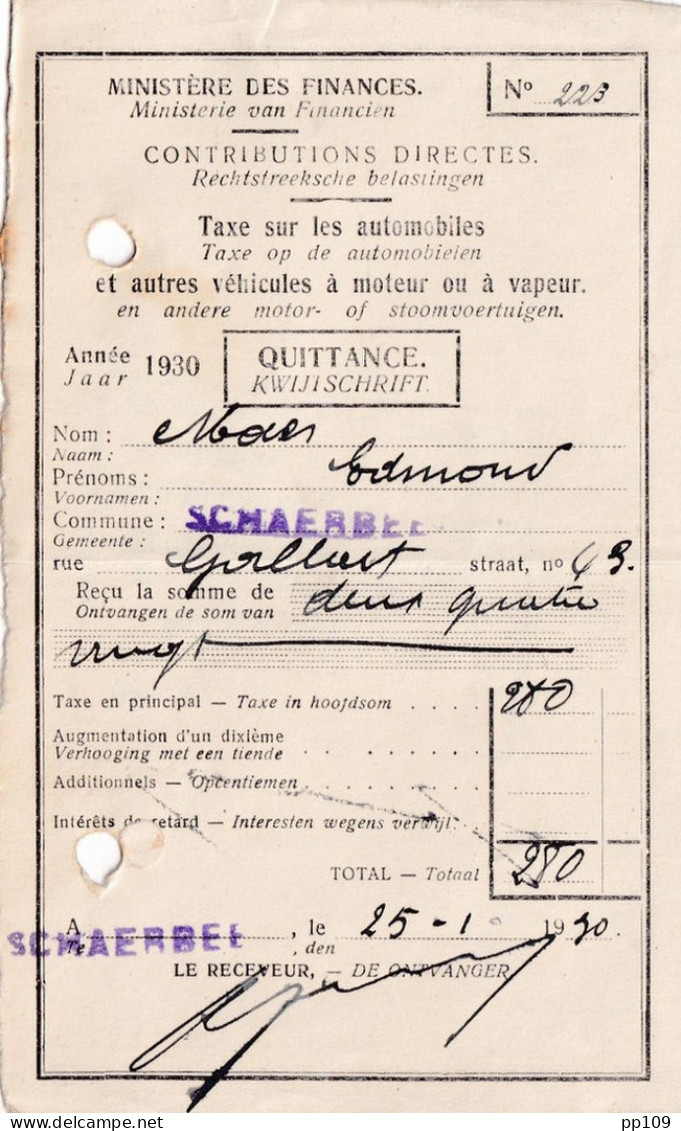 MINISTÈRE DES FINANCES.
Ministerie van Financiën
Nº 223
CONTRIBUTIONS DIRECTES.
Rechtstreeksche belastingen
Taxe sur les automobiles
Taxe op de automobielen
et autres véhicules à moteur ou à vapeur.
en andere motor- of stoomvoertuigen.
Année 1930
Jaar
QUITTANCE.
KWIJTSCHRIFT.
Nom : Maes
Naam :
Prénoms : Edmond
Voornamen :
Commune : SCHAERBEE
Gemeente :
rue straat, nº 43.
Reçu la somme de deux quatre
Ontvangen de som van
vingt
Taxe en principal — Taxe in hoofdsom . . . . 280
Augmentation d'un dixième
Verhooging met een tiende
Additionnels — Opcentiemen
Intérêts de retard — Interesten wegens verwijl.
TOTAL — Totaal 280
A SCHAERBEE , le 25-1 1930.
Te , den
LE RECEVEUR, — DE ONTVANGER
pp109